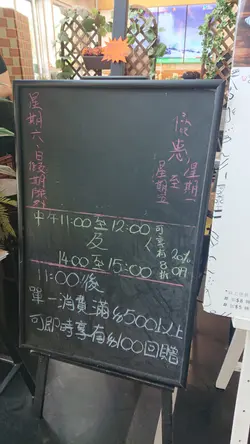 優惠
星期一
至
星期五
星期六、日假期除外
中午11:00至12:00
及
14:00至15:00
可享有8折
20% Off
11:00後
單一消費滿$500以上
可即時享有$100回贈